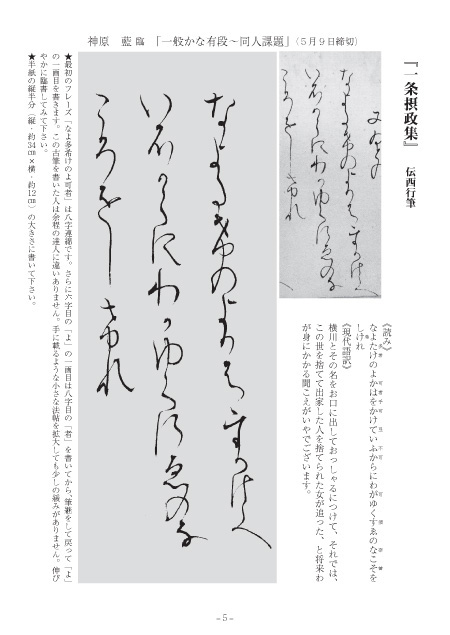 神原　藍 臨　「一般かな有段～同人課題」（５月９日締切）
『一条摂政集』　伝西行筆
《読み》
なよたけのよかはをかけていふからにわがゆくすゑのなこそを
しけれ
《現代語訳》
横川とその名をお口に出しておっしゃるにつけて、それでは、
この世を捨てて出家した人を捨てられた女が追った、と将来わ
が身にかかる聞こえがいやでございます。
★最初のフレーズ「なよ多希けのよ可者」は八字連綿です。さらに六字目の「よ」の一画目は八字目の「者」を書いてから、筆継をして戻って「よ」
の一画目を書きます。この古筆を書いた人は余程の達人に違いありません。手に載るような小さな法帖を拡大しても少しの緩みがありません。伸び
やかに臨書してみて下さい。
★半紙の縦半分（縦・約34㎝×横・約12㎝）の大きさに書いて下さい。
- 5 -